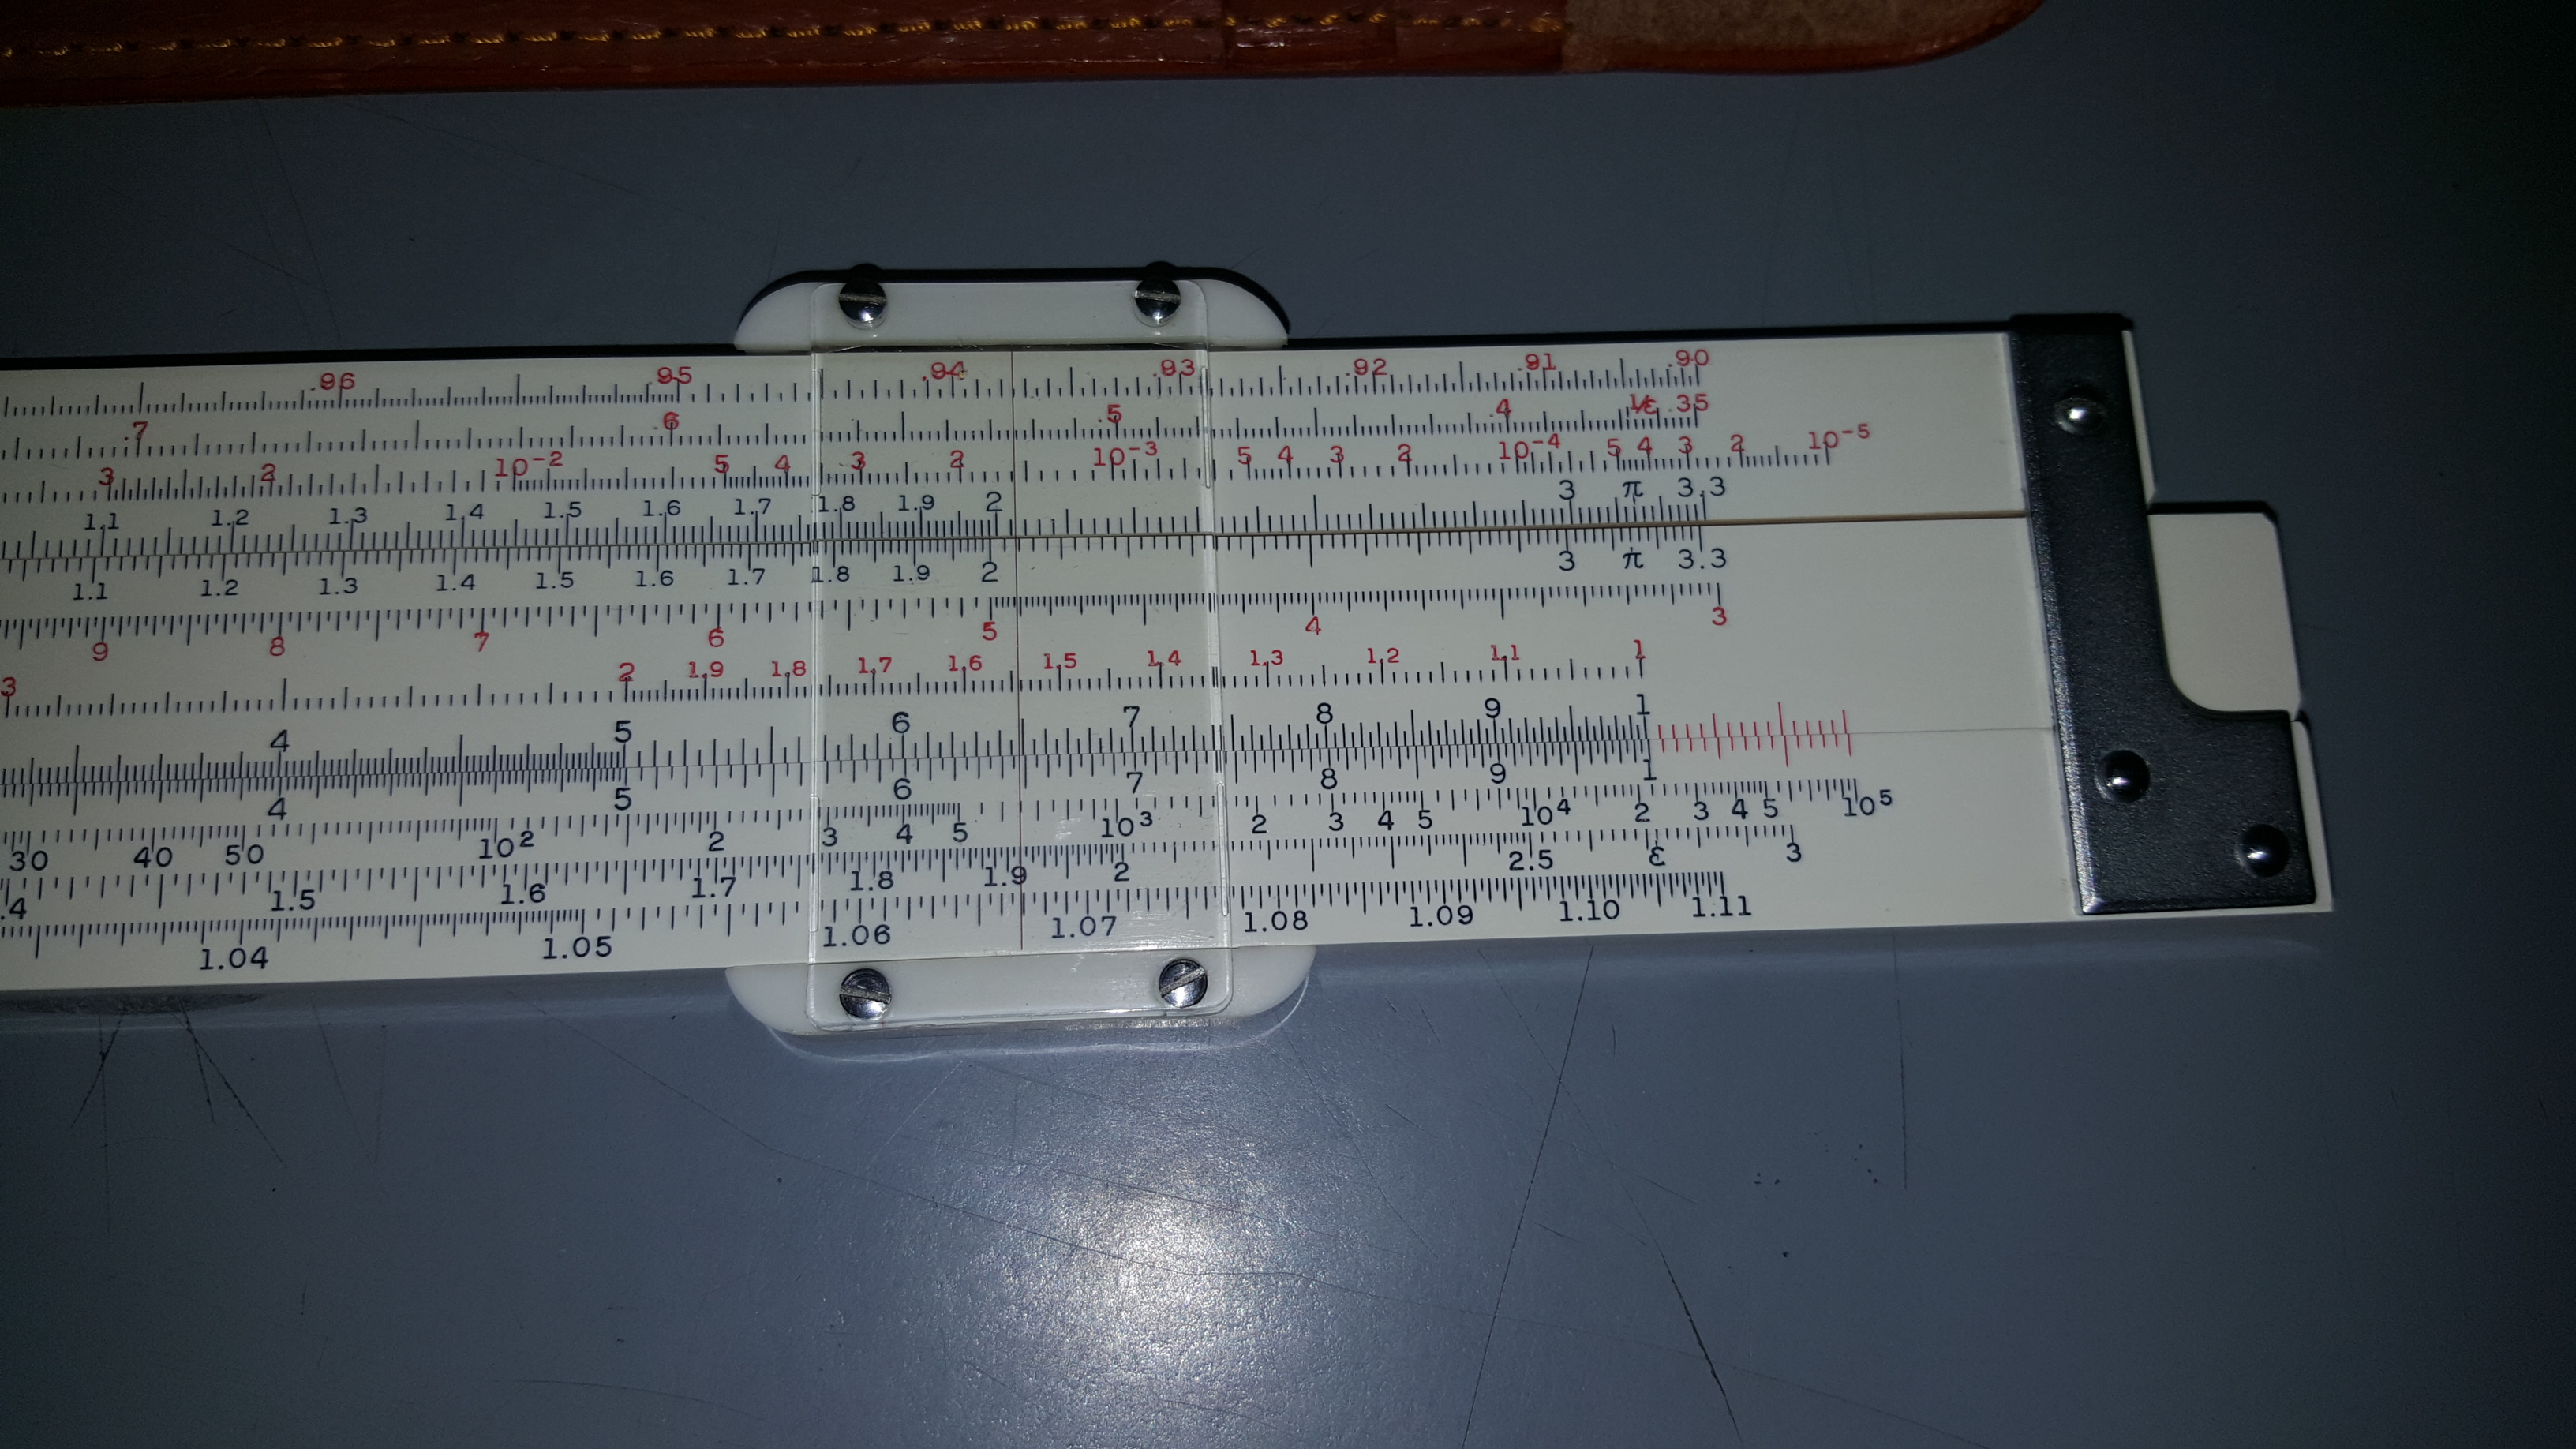 .96 .95 .94 .93 .92 .91 .90
.7 .6 .5 .4 1/ε .35
3 2 10-2 5 4 3 2 10-3 5 4 3 2 10-4 5 4 3 2 10-5
1.1 1.2 1.3 1.4 1.5 1.6 1.7 1.8 1.9 2 3 π 3.3
1.1 1.2 1.3 1.4 1.5 1.6 1.7 1.8 1.9 2 3 π 3.3
9 8 7 6 5 4 3
3 2 1.9 1.8 1.7 1.6 1.5 1.4 1.3 1.2 1.1 1
4 5 6 7 8 9 1
4 5 6 7 8 9 1
30 40 50 102 2 3 4 5 103 2 3 4 5 104 2 3 4 5 105
.4 1.5 1.6 1.7 1.8 1.9 2 2.5 ε 3
1.04 1.05 1.06 1.07 1.08 1.09 1.10 1.11